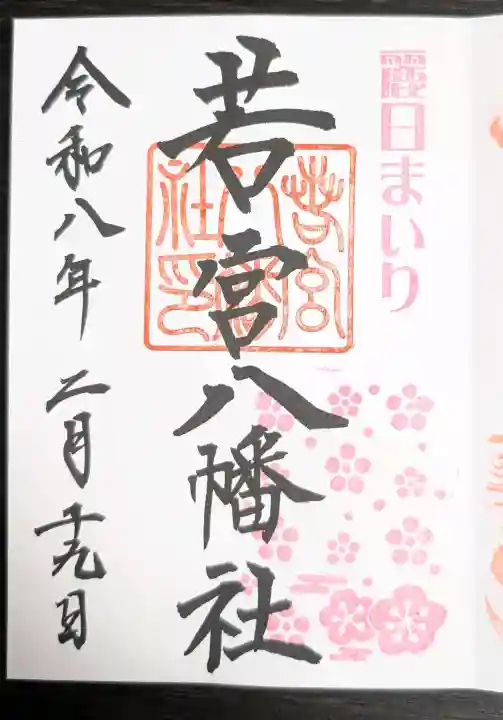 麗日まいり
若宮八幡社
若宮八幡社印
令和八年 二月十九日